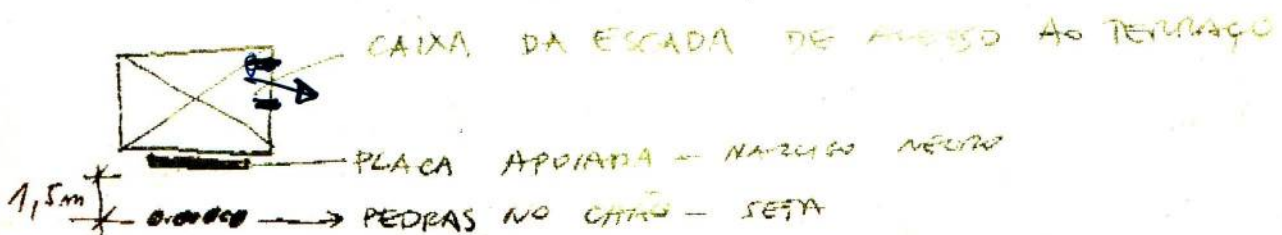 CAIXA DA ESCADA DE ACESSO AO TERRAÇO
PLACA APOIADA - NEGRO
1,5m
PEDRAS NO CHÃO - SETA